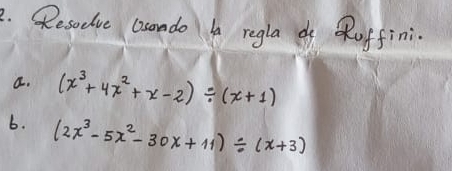 2. Resuelve usando la regla de Ruffini.
a. (x³+4x²+x-2) ÷ (x+1)
b. (2x³-5x²-30x+11) ÷ (x+3)